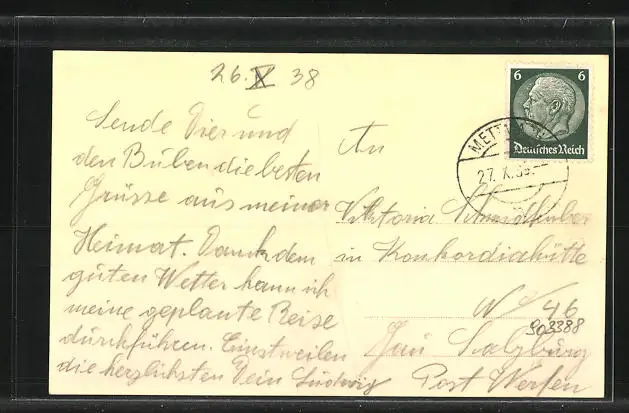 26. X 38
Sende Dir und
den Buben die besten
Grüsse aus meiner
Heimat. Dank dem
guten Wetter kann ich
meine geplante Reise
durchführen. Einstweilen
die herzlichsten Dein Ludwig
An
Viktoria
in Konkordiahütte
N 46
903388
Gau Salzburg
Post Werfen
6 6
Deutsches Reich
27. X. 38